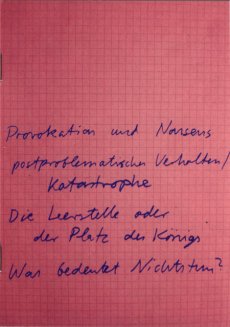 Provokation und Nonsens
postproblematisches Verhalten/
Katastrophe
Die Leerstelle oder
der Platz des Königs
Was bedeutet Nichtstun?